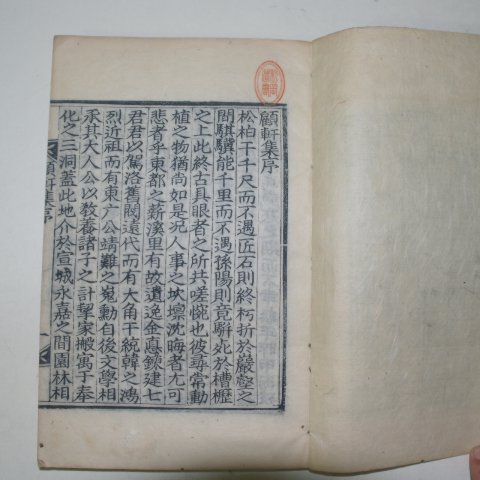 顧軒集序
松柏千千尺而不遇匠石則終朽折於巖壑之
間騏驥能千里而不遇孫陽則竟騈死於槽櫪
之上此終古具眼者之所共嗟惋也彼尋常動
植之物猶尚如是况人事之坎壈沈晦者尤可
悲者乎東都之薪溪里有故遺逸金𢜤鍊建七
君君以駕洛舊閥遠代而有大角干統韓之鴻
烈近祖而有東广公靖難之嵬勳自後文學相
承其大人公以敎養諸子之計挈家搬寓于奉
化之三洞盖此地介於宣城永嘉之間園林相
顧軒集序